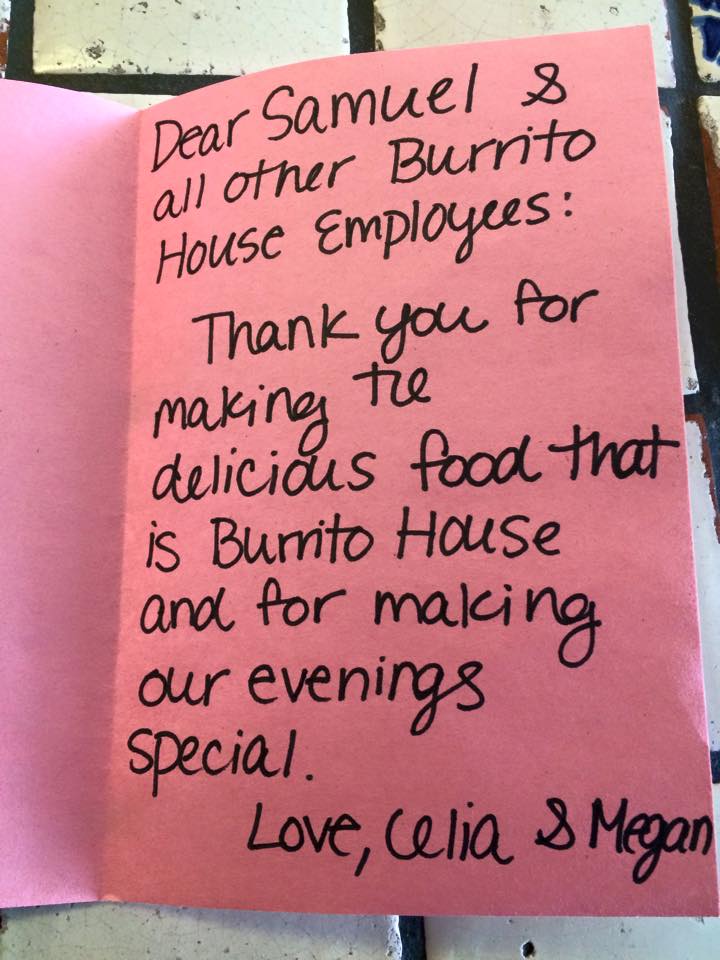 Dear Samuel &
all other Burrito
House Employees:
Thank you for
making the
delicious food that
is Burrito House
and for making
our evenings
special.
Love, Celia & Megan